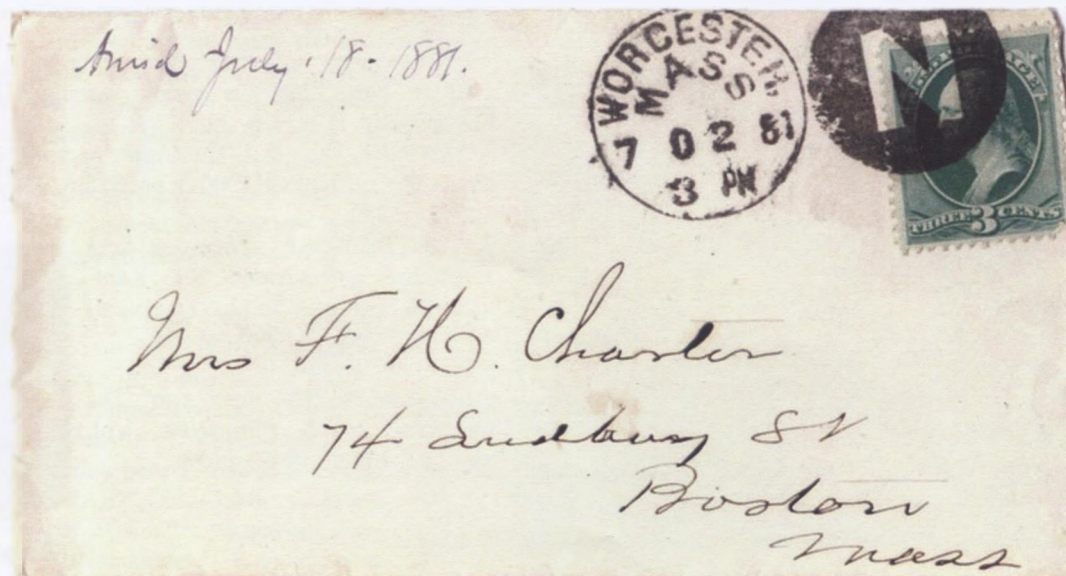 July 18 - 1881.
WORCESTER,
MASS
7 0 2 81
3 PM
N
THREE 3 CENTS
Mrs F. H. Charter
74 Sudbury St
Boston
Mass